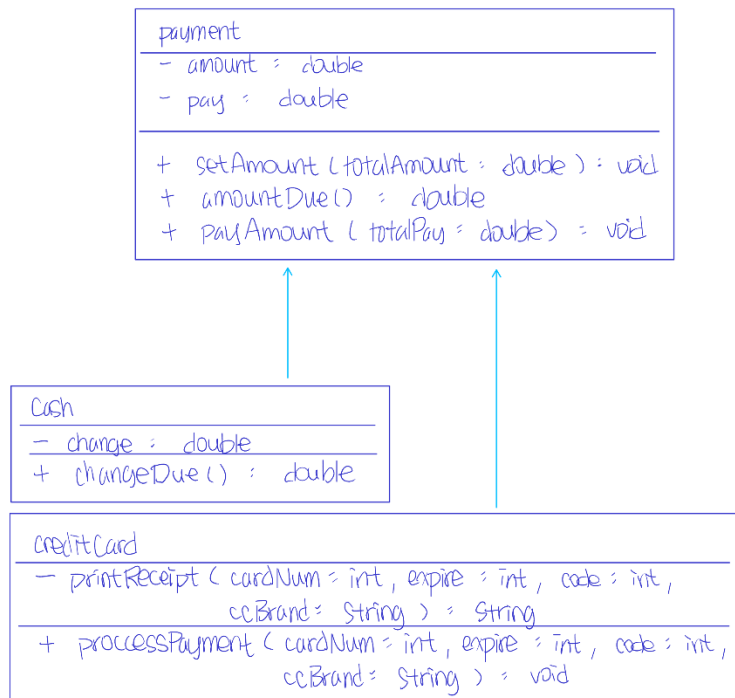 payment
- amount : double
- pay : double
+ setAmount (totalAmount : double) : void
+ amountDue() : double
+ payAmount (totalPay : double) : void
Cash
- change : double
+ changeDue() : double
creditCard
- printReceipt (cardNum : int, expire : int, code : int,
ccBrand : String) : String
+ proccessPayment (cardNum : int, expire : int, code : int,
ccBrand : String) : void